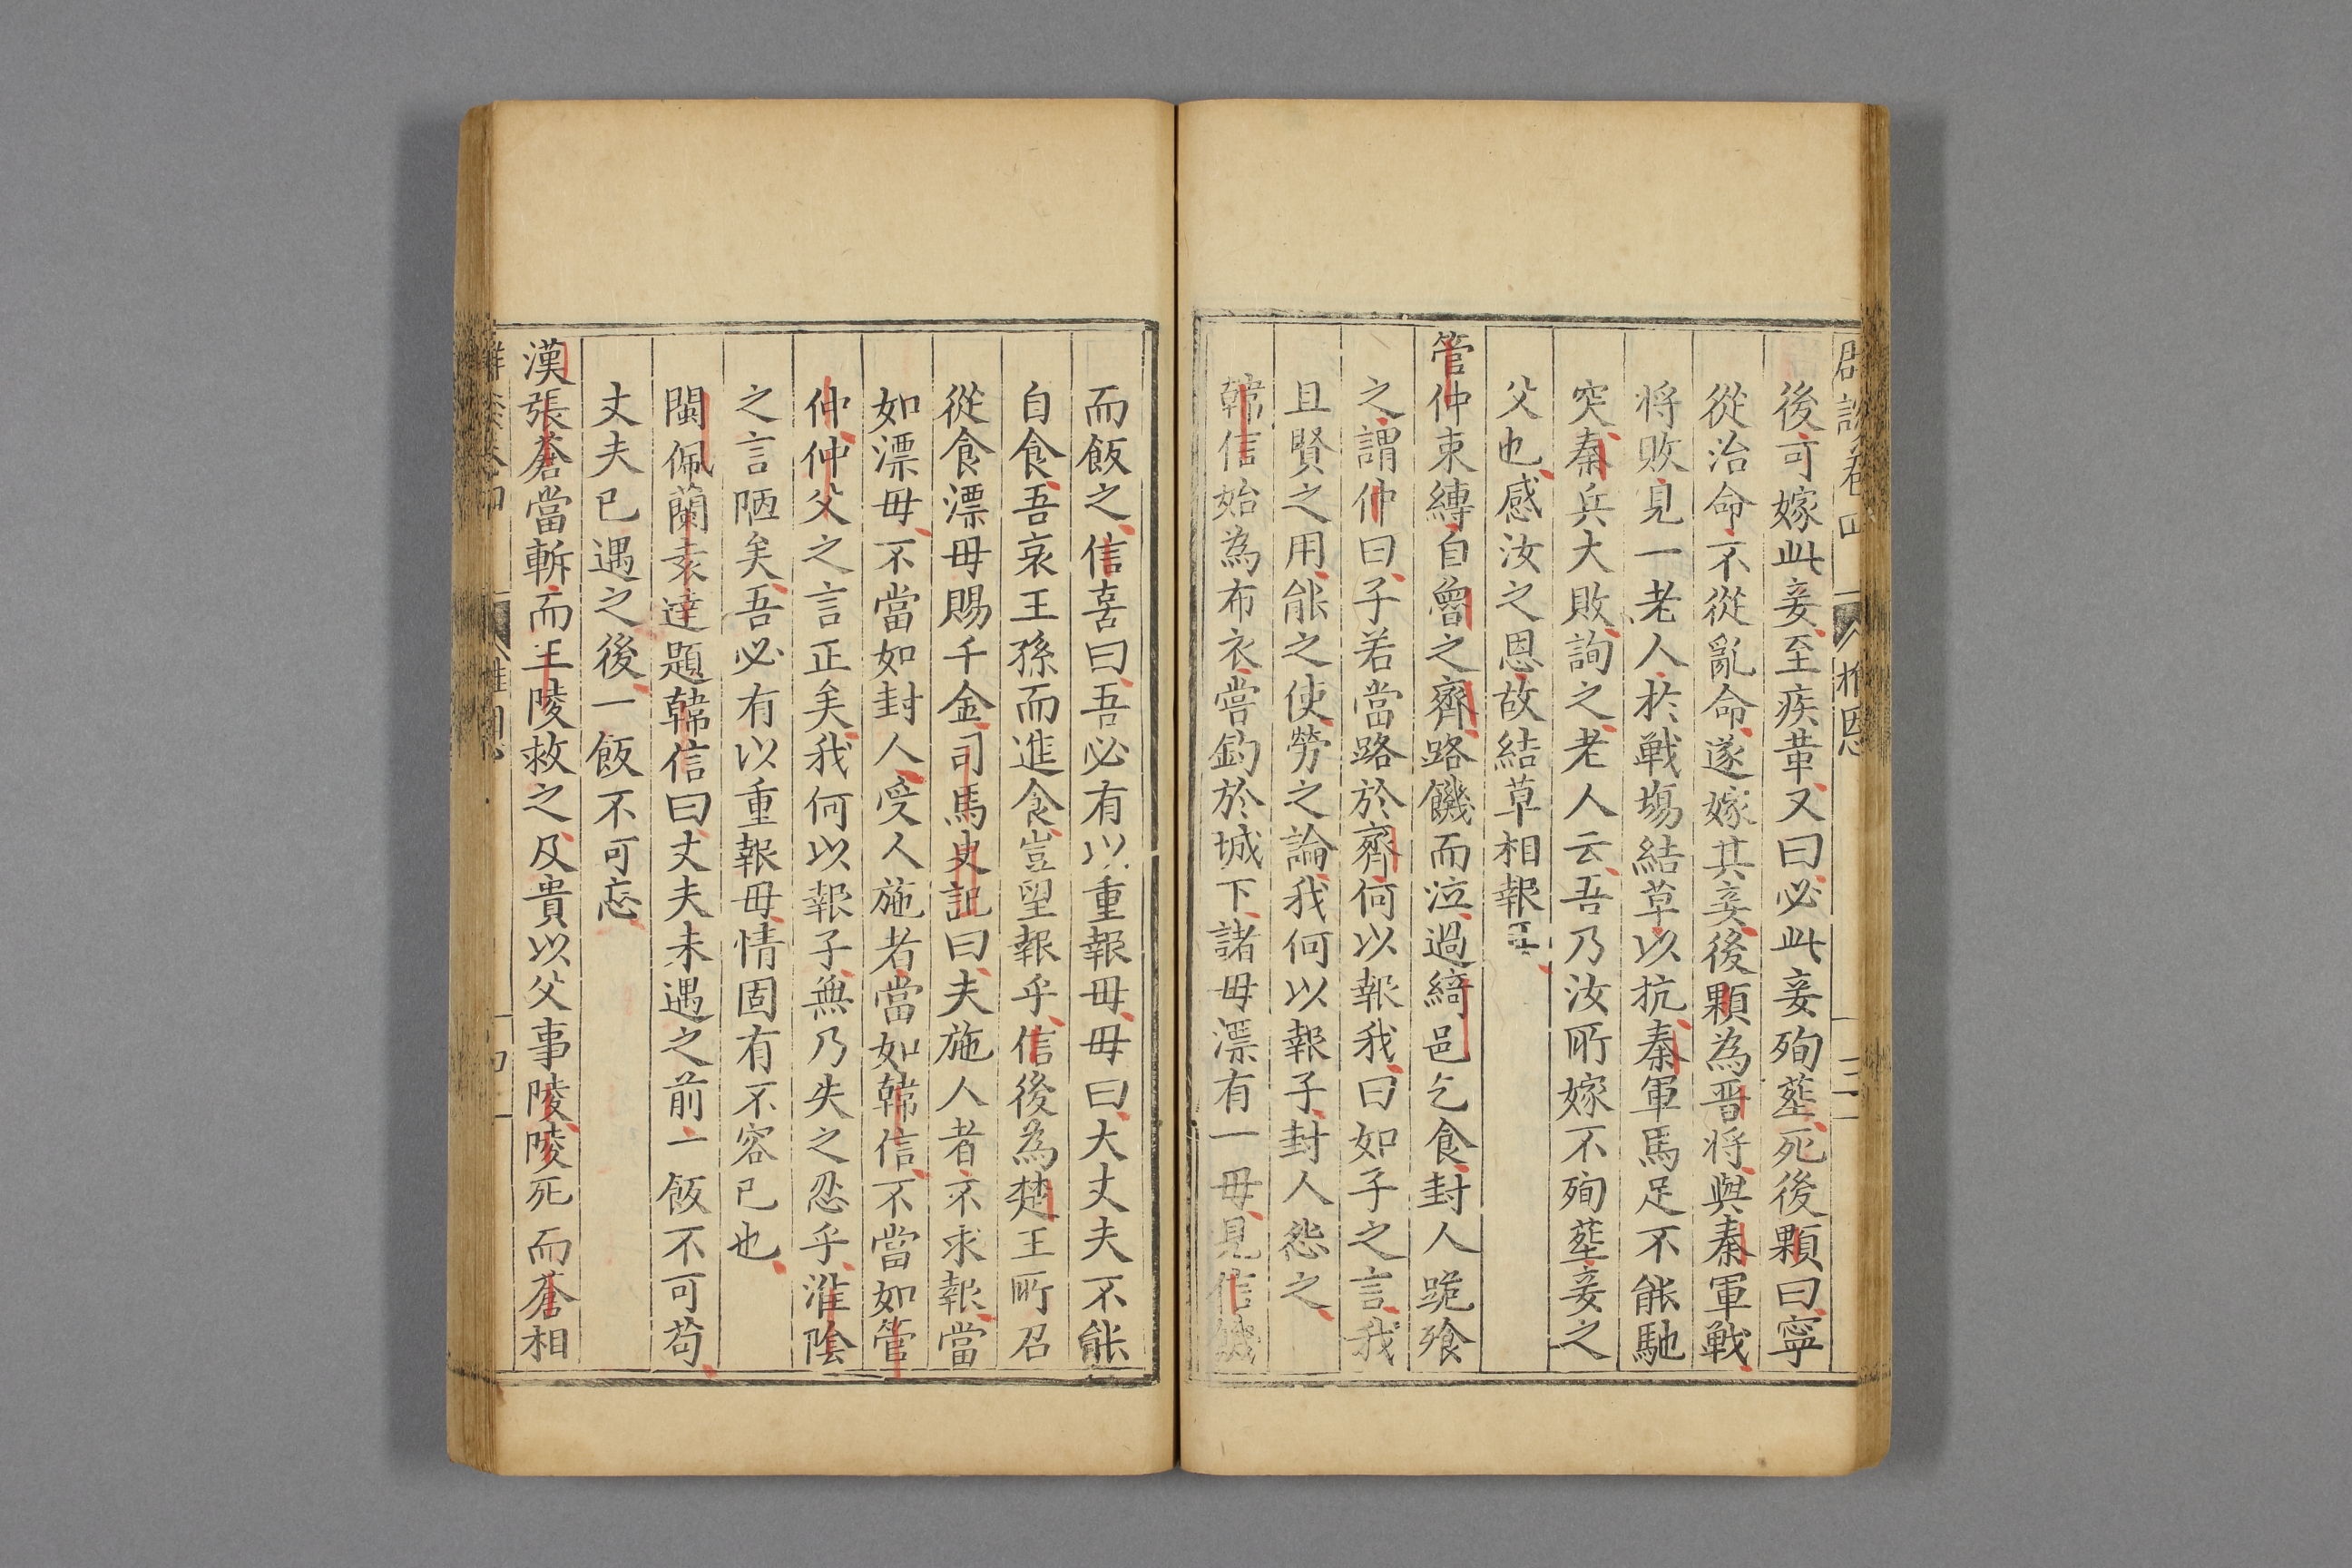 後可嫁此妾至疾革又曰必此妾殉塟死後顆曰寧
從治命不從亂命遂嫁其妾後顆為晋將與秦軍戰
將敗見一老人於戰塲結草以抗秦軍馬足不能馳
突秦兵大敗詢之老人云吾乃汝所嫁不殉塟妾之
父也感汝之恩故結草相報耳
管仲束縳自魯之齊路饑而泣過綺邑乞食封人跪飱
之謂仲曰子若當路於齊何以報我曰如子之言我
且賢之用能之使勞之論我何以報子封人怨之
韓信始為布衣嘗釣於城下諸母漂有一母見信饑
而飯之信喜曰吾必有以重報母母曰大丈夫不能
自食吾哀王孫而進食豈望報乎信後為楚王所召
從食漂母賜千金司馬史記曰夫施人者不求報當
如漂母不當如封人受人施者當如韓信不當如管
仲仲父之言正矣我何以報子無乃失之忍乎淮陰
之言陋矣吾必有以重報母情固有不容已也
閩佩蘭袁達題韓信曰丈夫未遇之前一飯不可茍
丈夫已遇之後一飯不可忘
漢張蒼當斬而王陵救之及貴以父事陵陵死而蒼相